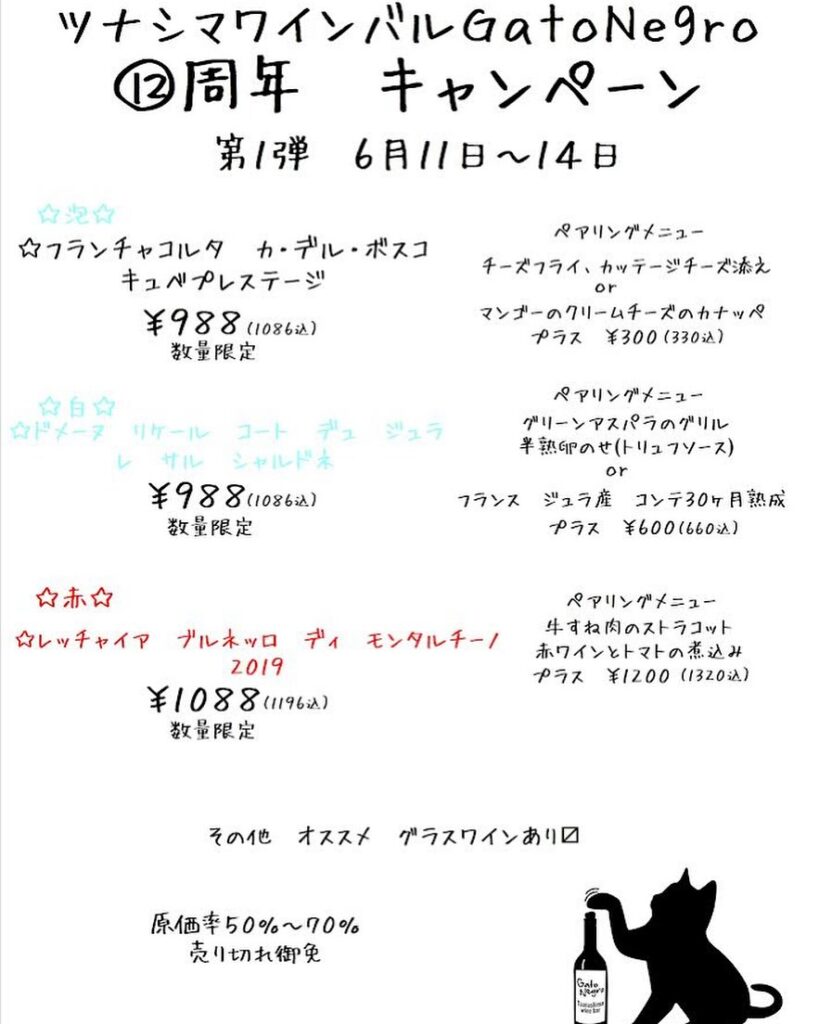 ツナシマワインバルGatoNegro
⑫周年　キャンペーン
第1弾　6月11日～14日
☆泡☆
☆フランチャコルタ　カ・デル・ボスコ
キュベプレステージ
¥988(1086込)
数量限定
ペアリングメニュー
チーズフライ、カッテージチーズ添え
or
マンゴーのクリームチーズのカナッペ
プラス　¥300(330込)
☆白☆
☆ドメーヌ　リケール　コート　デュ　ジュラ
レ　サル　シャルドネ
¥988(1086込)
数量限定
ペアリングメニュー
グリーンアスパラのグリル
半熟卵のせ(トリュフソース)
or
フランス　ジュラ産　コンテ30ヶ月熟成
プラス　¥600(660込)
☆赤☆
☆レッチャイア　ブルネッロ　ディ　モンタルチーノ
2019
¥1088(1196込)
数量限定
ペアリングメニュー
牛すね肉のストラコット
赤ワインとトマトの煮込み
プラス　¥1200(1320込)
その他　オススメ　グラスワインあり〼
原価率50%～70%
売り切れ御免
Gato
Negro
Tsunashima
wine bar